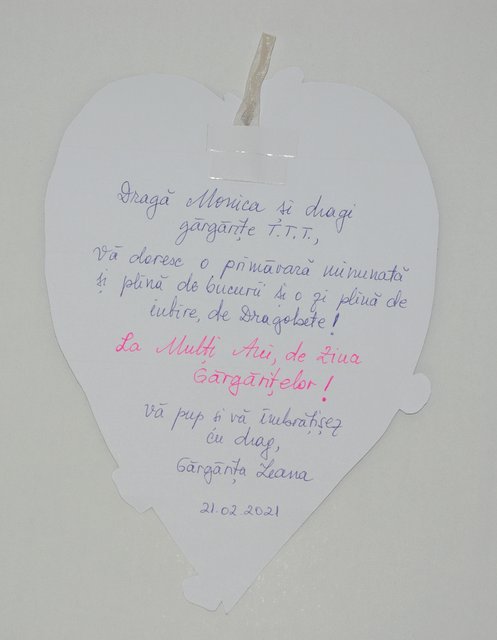 Dragă Monica și dragi
gărgărițe T.T.T.,
Vă doresc o primăvară minunată
și plină de bucurii și o zi plină de
iubire, de Dragobete!
La Mulți Ani, de Ziua
Gărgărițelor!
Vă pup și vă îmbrățișez
cu drag,
Gărgărița Leana
21.02.2021